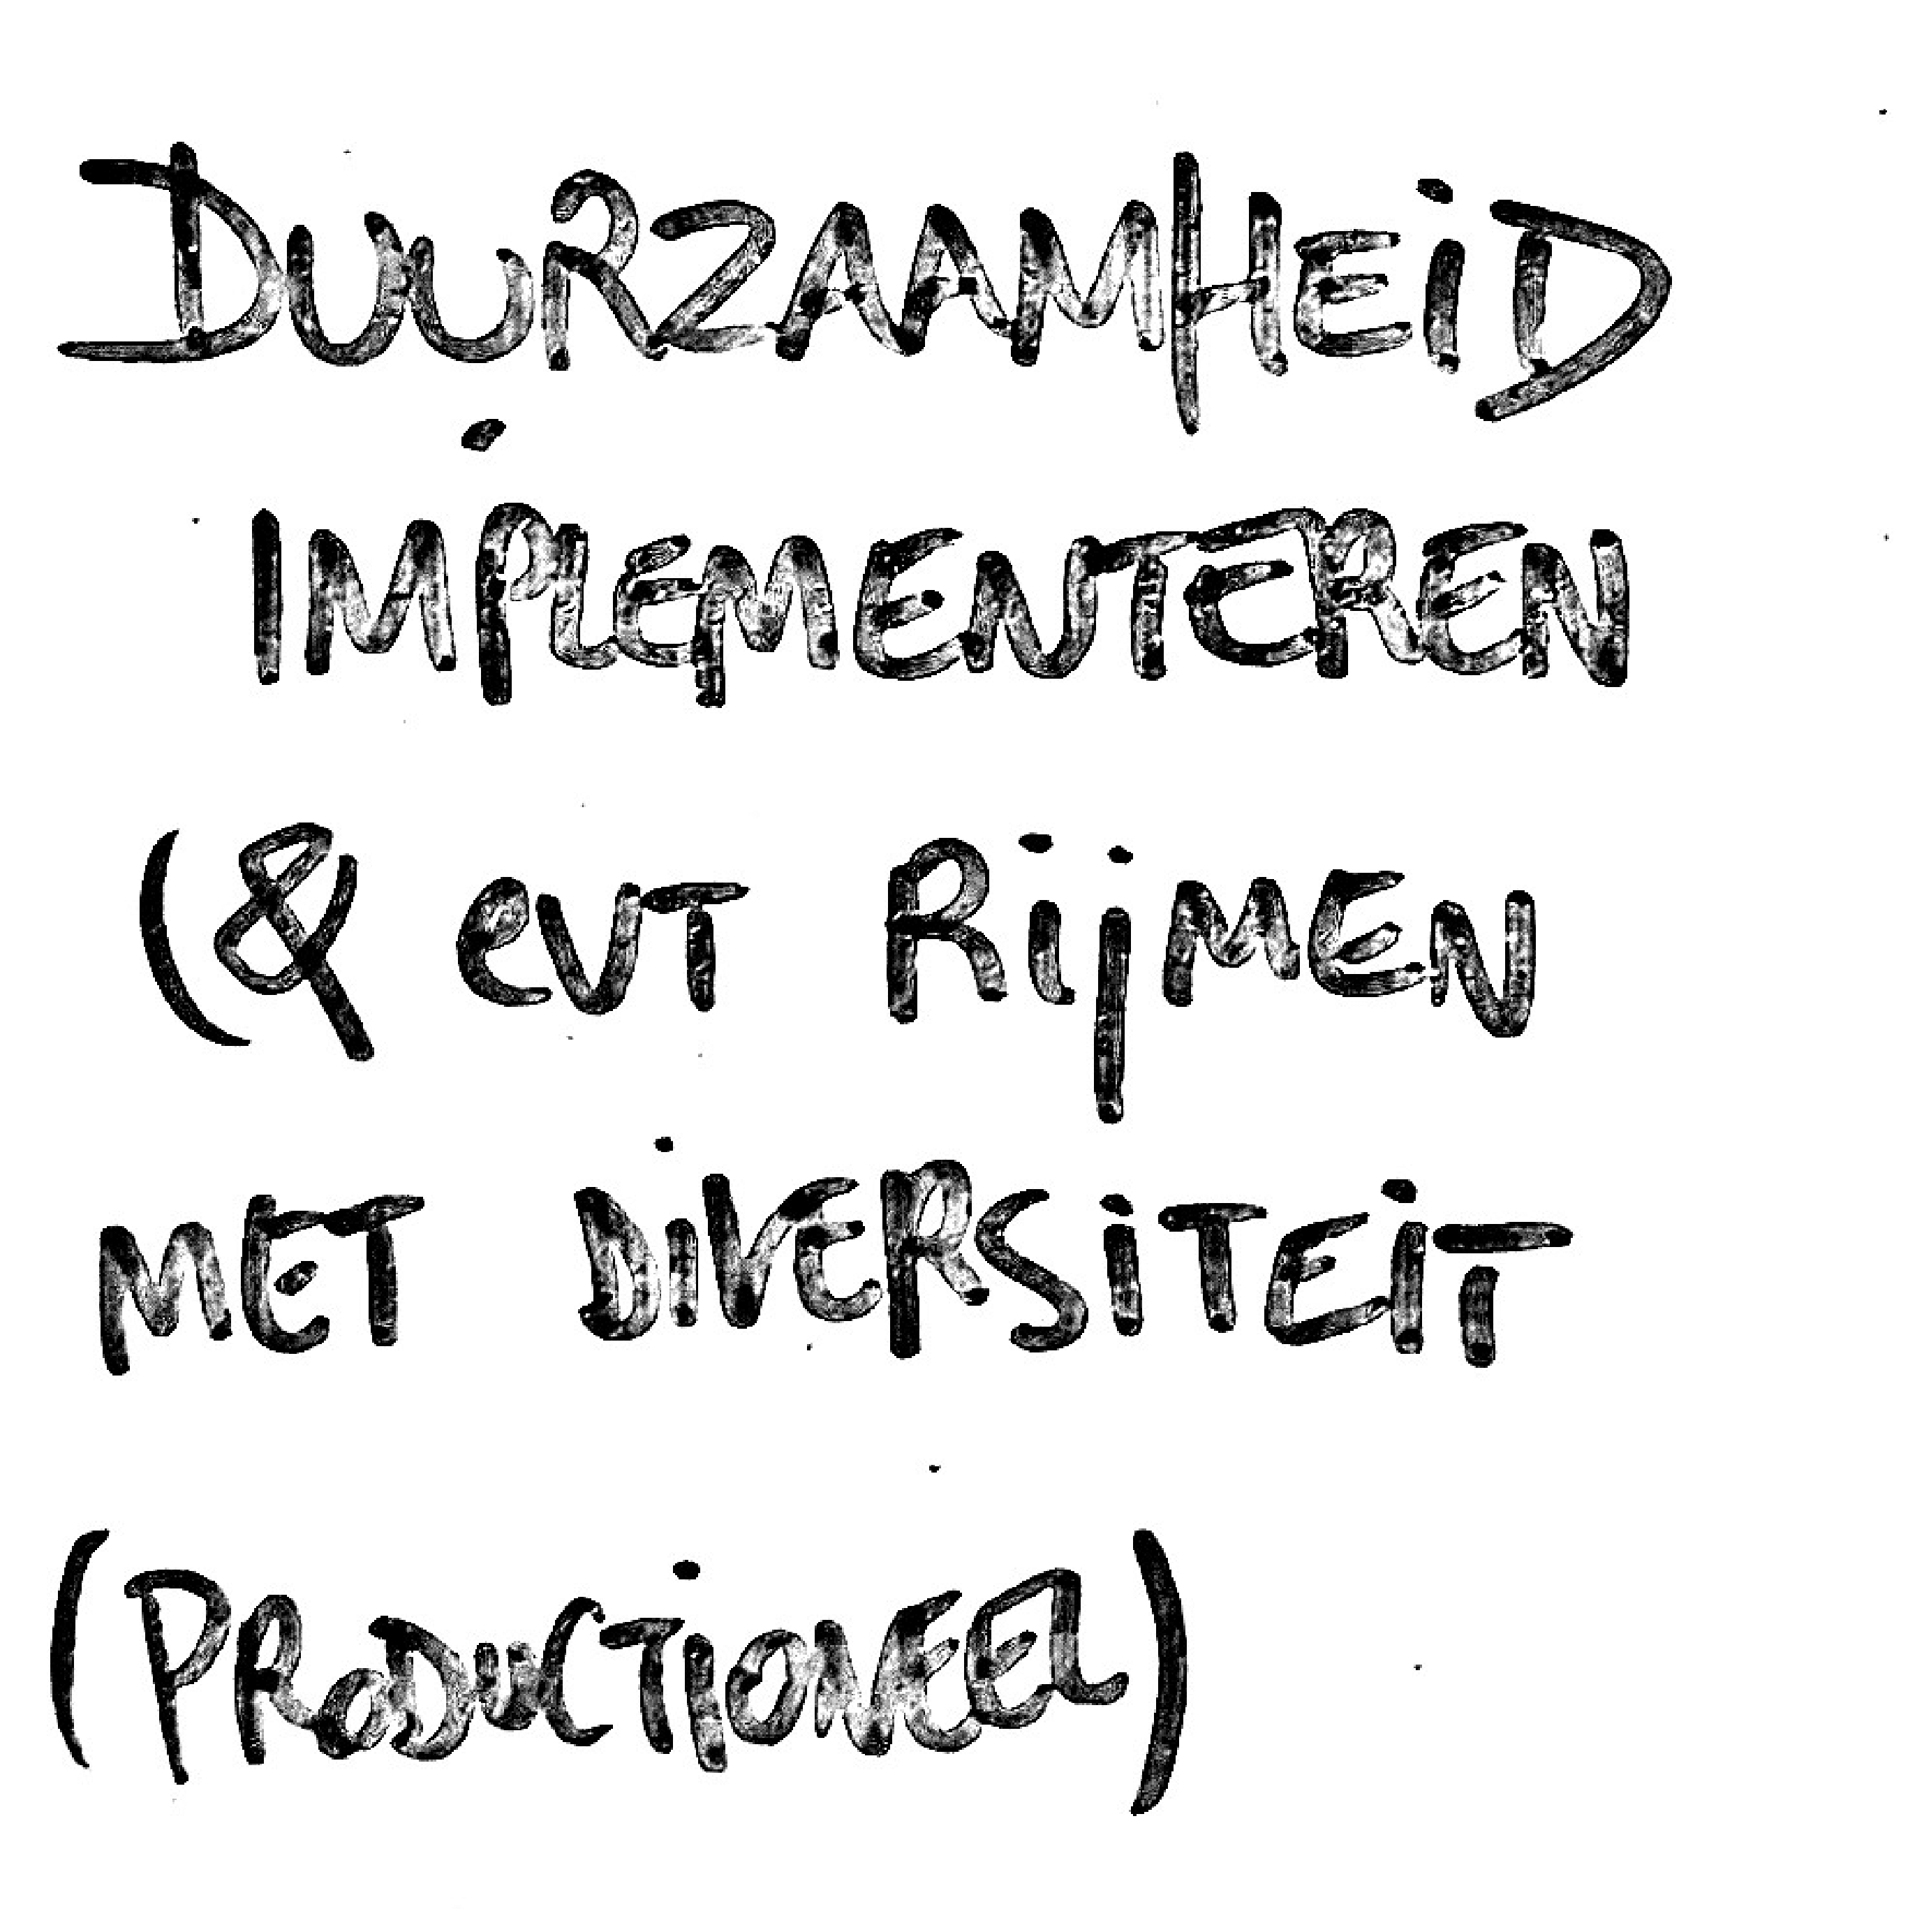 DUURZAAMHEiD
IMPLEMENTEREN
(& evt RijMEN
MET DiVERSiTEiT
(PRODUCTiONEEL)